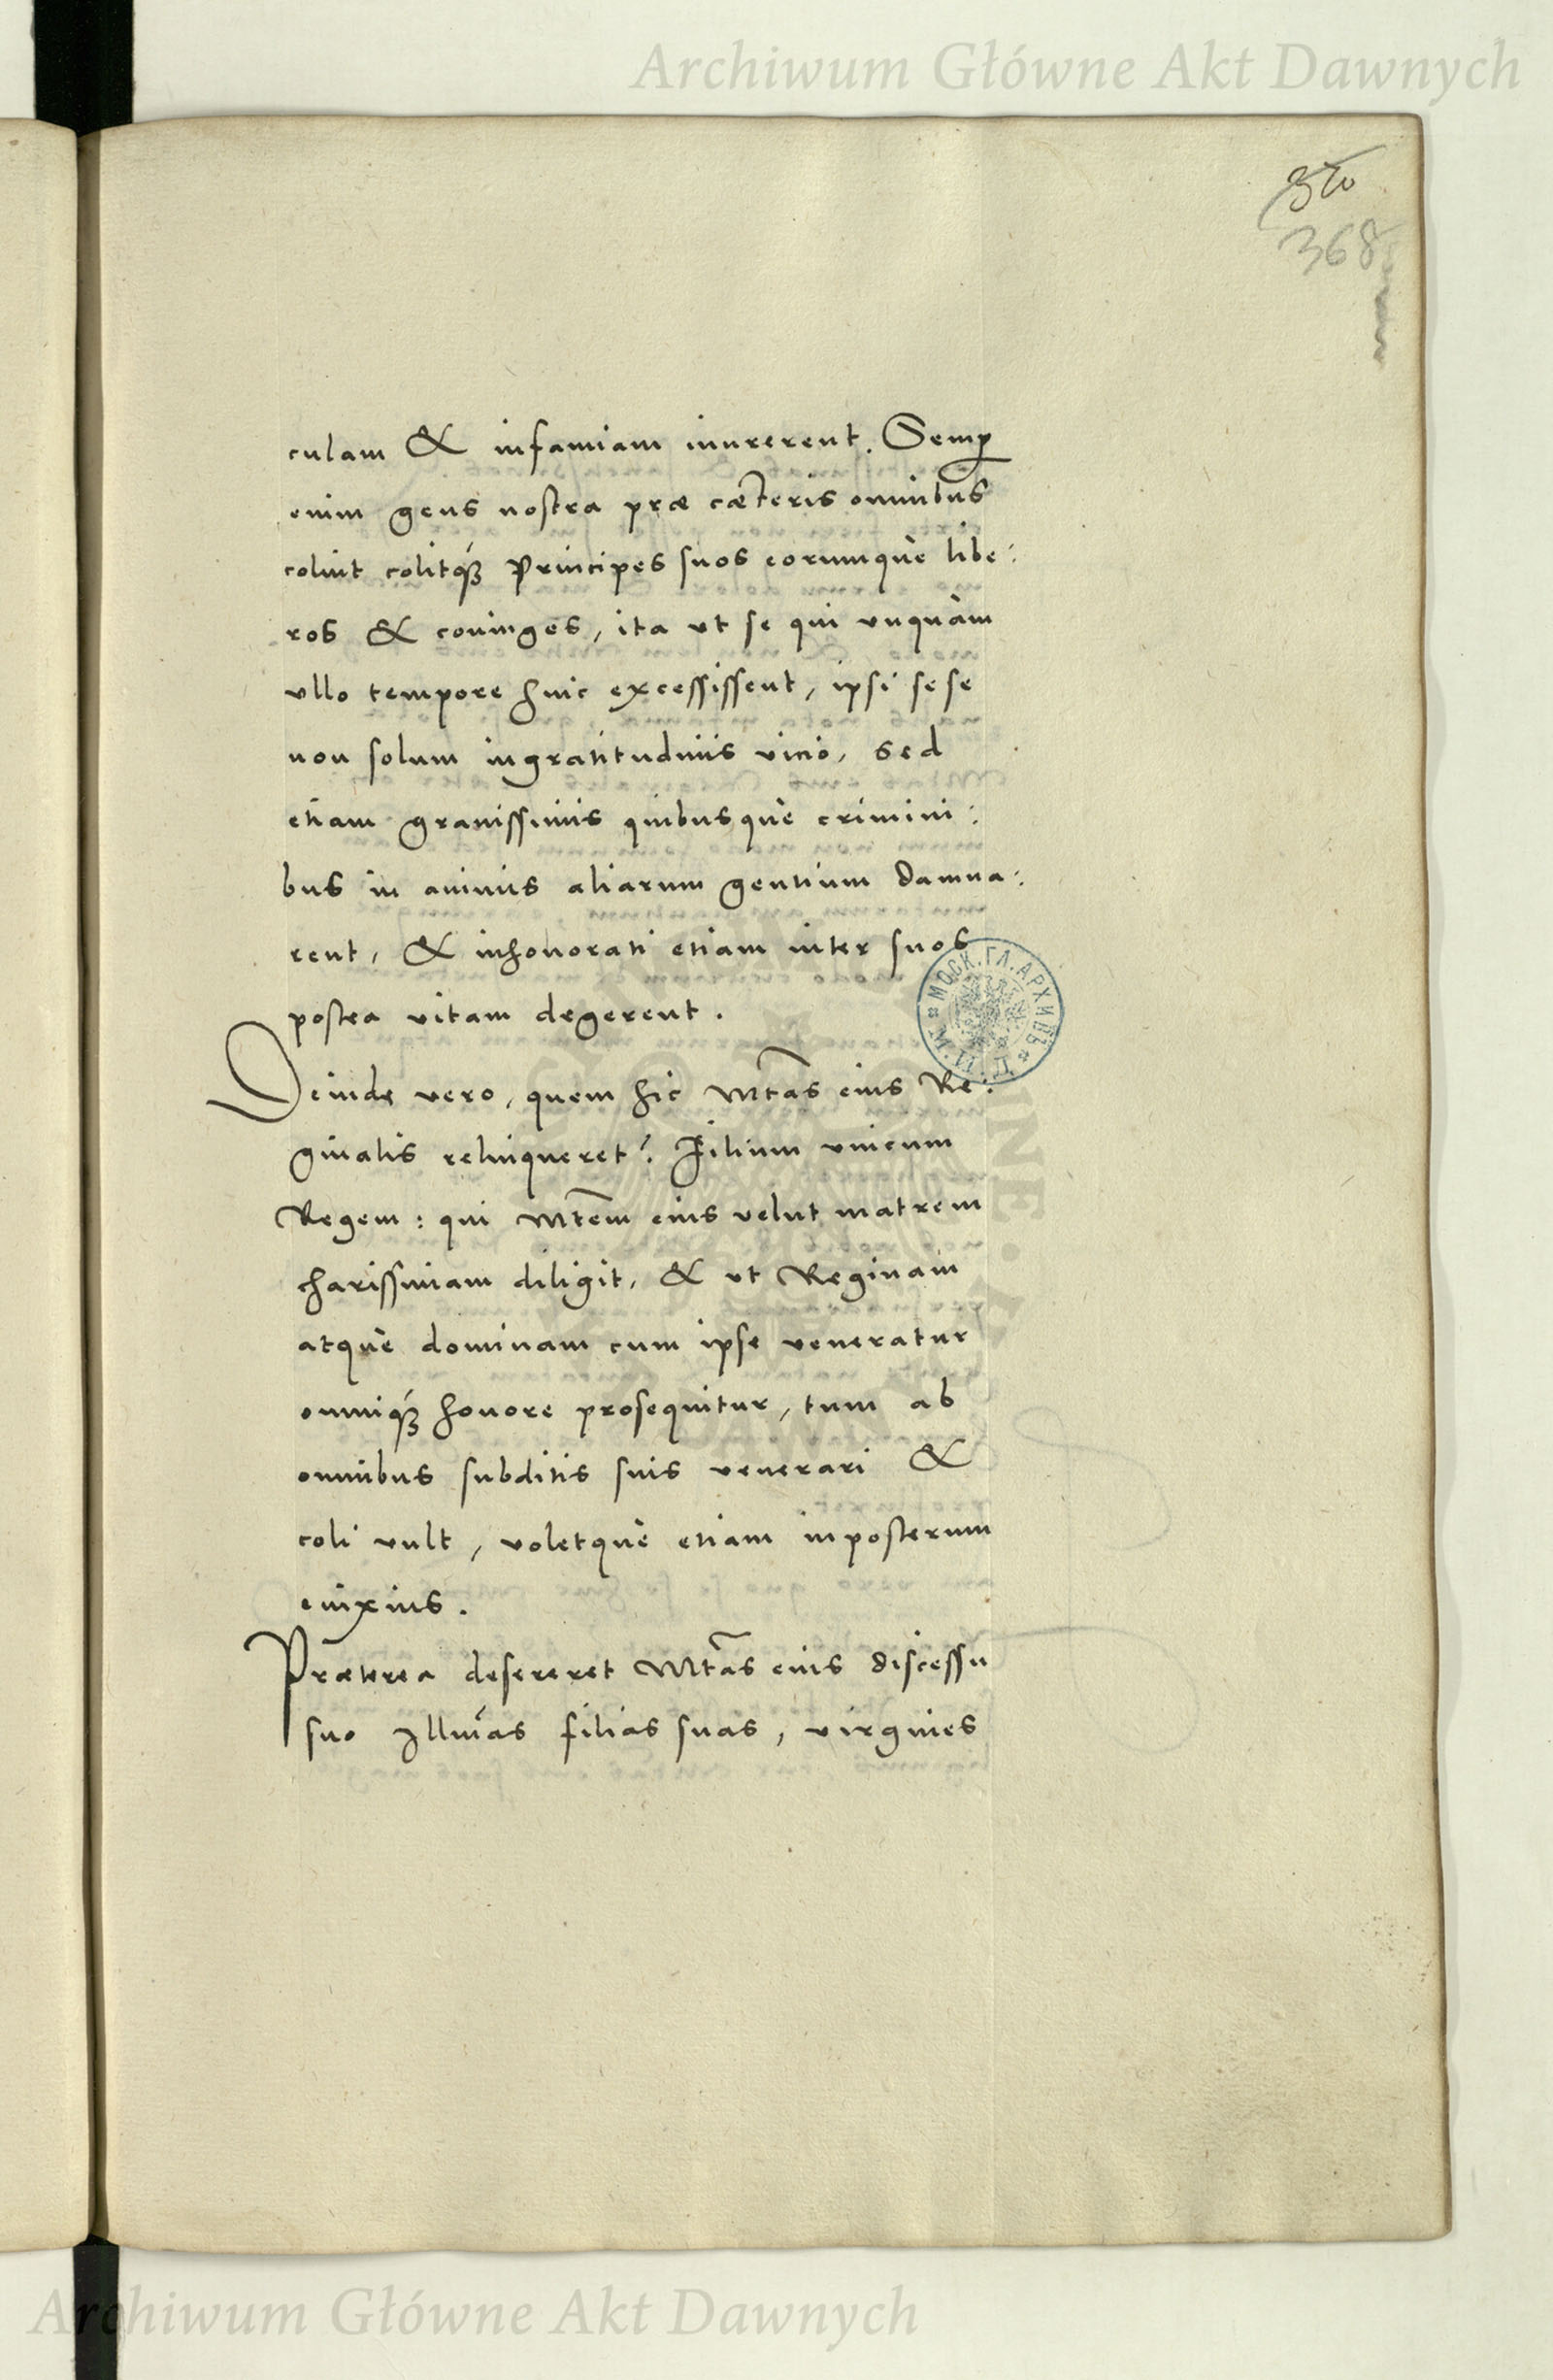 Archiwum Główne Akt Dawnych
368
culam & infamiam inurerent. Semp
enim gens nostra præ cæteris omnibus
coluit colitq́ꝫ Principes suos eorumquè libe:
ros & coniuges, ita vt se qui vnquàm
vllo tempore huic excessissent, ipsi sese
non solum ingratitudinis vicio, sed
etiam grauissimis quibusquè crimini:
bus in animis aliarum gentium damna:
rent, & inhonorati etiam inter suos
postea vitam degerent.
МОСК. ГЛ. АРХИВЪ
Deinde vero, quem hic Mtas eius Re:
ginalis relinqueret? Filium vnicum
Regem: qui Mtem eius velut matrem
charissimam diligit, & vt Reginam
atquè dominam cum ipse veneratur
omniq́ꝫ honore prosequitur, tum ab
omnibus subditis suis venerari &
coli vult, voletquè etiam inposterum
enixius.
Præterea desereret Mtas eius discessu
suo Illmas filias suas, virgines
Archiwum Główne Akt Dawnych